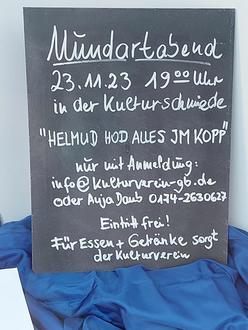 Mundartabend
23.11.23 19⁰⁰ Uhr
in der Kulturschmiede
"HELMUD HOD ALLES IM KOPP"
nur mit Anmeldung:
info@kulturverein-gb.de
oder Anja Daub 0174-2630627
Eintritt frei!
Für Essen + Getränke sorgt
der Kulturverein